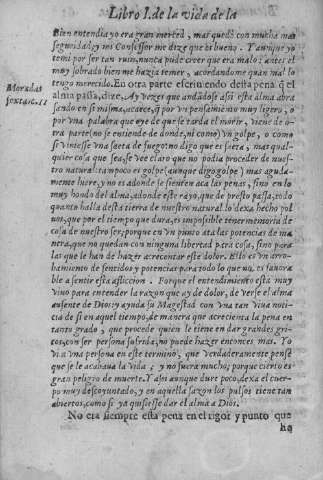 Libro I. de la vida de la
Bien entendia yo era gran merced, mas quedè con mucha mas
seguridad, y mi Confessor me dize que es bueno. Y aunque yo
temi por ser tan ruin, nunca pude creer que era malo: antes el
muy sobrado bien me hazia temer, acordandome quan mal lo
tengo merecido. En otra parte escriuiendo desta pena q̃ el
Moradas
sextas c. 11
alma passa, dize, Ay vezes que andãdose assi esta alma abra
sando en si misma, acaece, q̃ por vn pensamiento muy ligero, o
por vna palabra que oye de que se tarda el morir, viene de o-
tra parte (no se entiende de donde, ni como) vn golpe, o como
si viniesse vna saeta de fuego: no digo que es saeta, mas qual-
quier cosa que sea, se vee claro que no podia proceder de nues-
tro natural: tampoco es golpe (aunque digo golpe) mas aguda-
mente hiere, y no es adonde se sienten aca las penas, sino en lo
muy hondo del alma, adonde este rayo, que de presto passa, todo
quanto halla desta tierra de nuestro natural lo dexa hecho pol
uos, que por el tiempo que dura, es impossible tener memoria de
cosa de nuestro ser; porque en vn punto ata las potencias de ma
nera, que no quedan con ninguna libertad para cosa, sino para
las que le han de hazer acrecentar este dolor. Ello es vn arro-
bamiento de sentidos y potencias para todo lo que no es fauora
ble a sentir esta afliccion. Porque el entendimiento està muy
viuo para entender la razon que ay de dolor, de verse el alma
ausente de Dios: y ayuda su Magestad con vna tan viua noti-
cia de si en aquel tiempo, de manera que acrecienta la pena en
tanto grado, que procede quien le tiene en dar grandes gri-
tos, con ser persona sufrida, no puede hazer entonces mas. Yo
vi a vna persona en este termino, que verdaderamente pensè
que se le acabaua la vida; y no fuera mucho; porque cierto es
gran peligro de muerte. Y assi aunque dure poco, dexa el cuer-
po muy descoyuntado, y en aquella sazon los pulsos tiene tan
abiertos, como si ya quisiesse dar el alma a Dios.
No era siempre esta pena en el rigor y punto que
ha